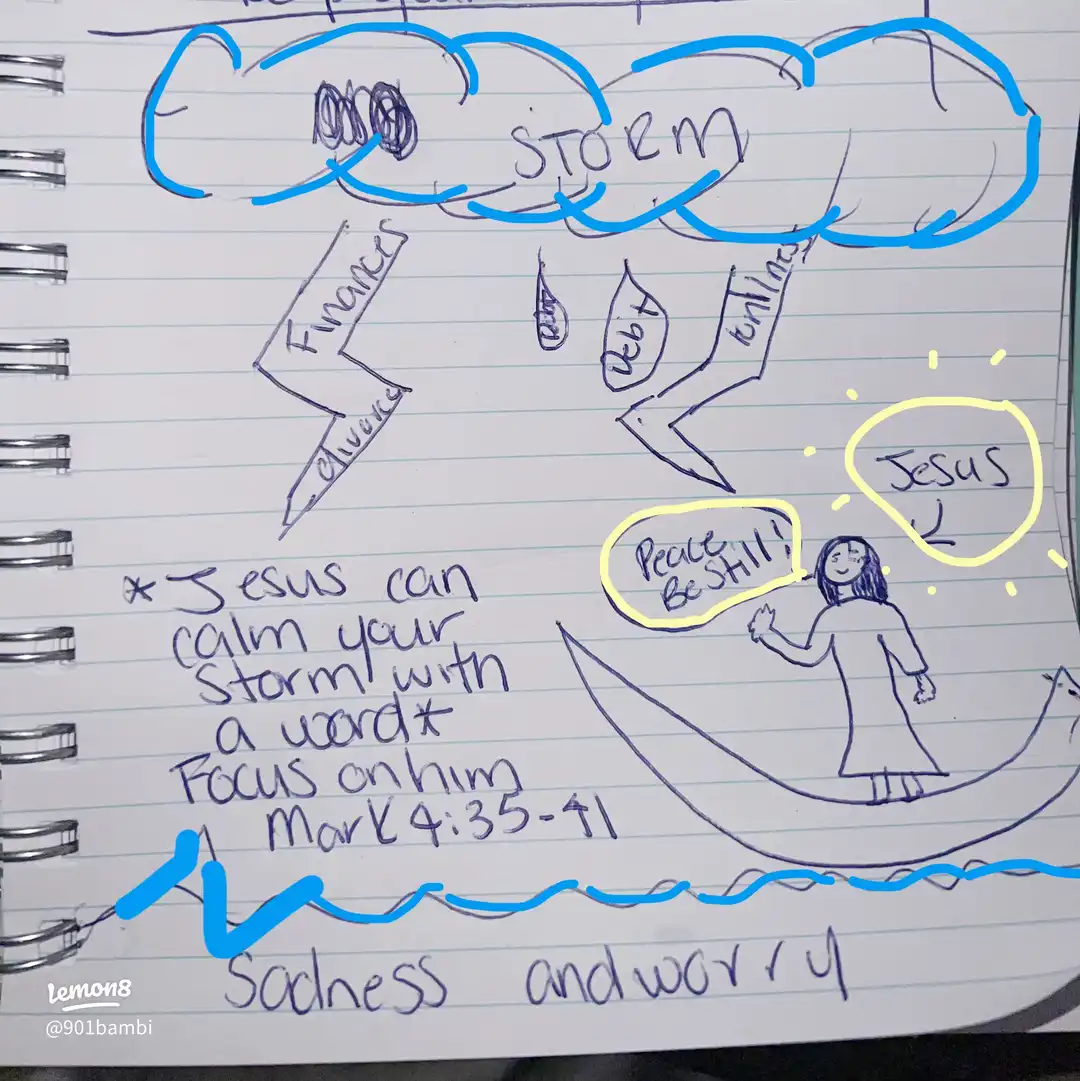 STORM
Finances
divorce
Debit
lonliness
Jesus
Peace
Be Still!
*Jesus can
calm your
storm with
a word*
Focus on him
Mark 4:35-41
Sadness and worry
lemon8
@901bambi